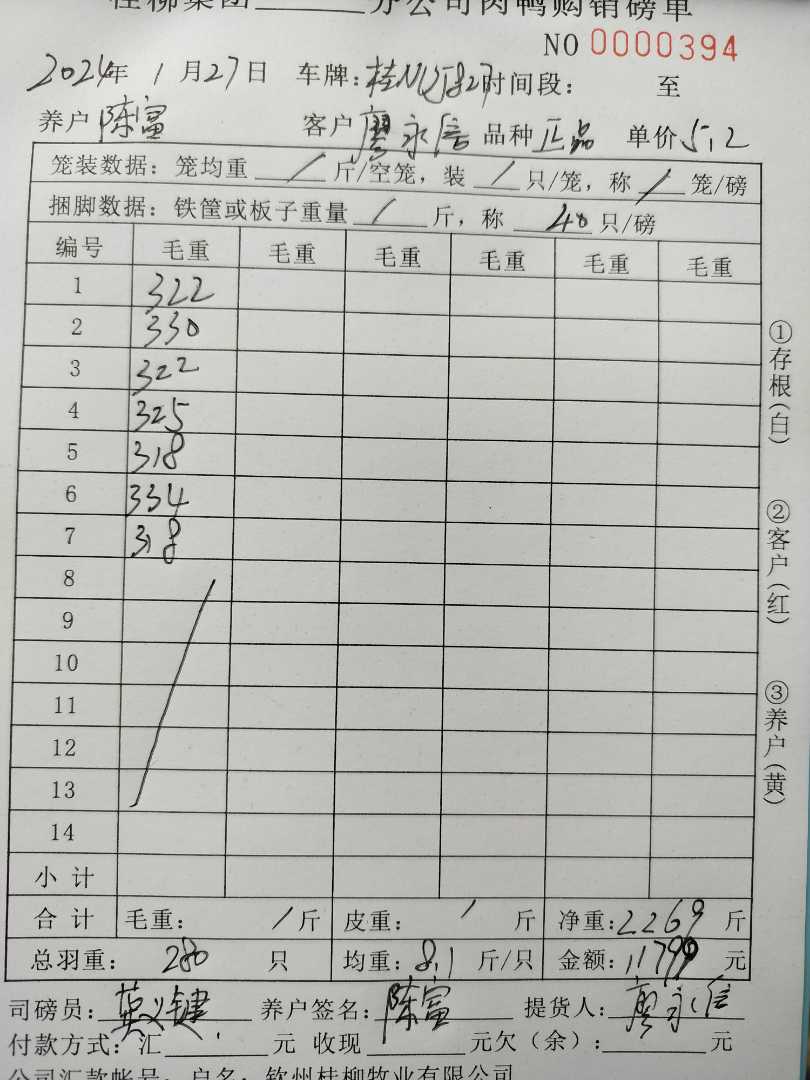 桂柳集团______分公司肉鸭购销磅单
NO 0000394
2024年 1月27日 车牌:桂N 时间段: 至
养户 陈富 客户 廖永信 品种 正品 单价 5.2
笼装数据:笼均重 / 斤/空笼,装 / 只/笼,称 / 笼/磅
捆脚数据:铁筐或板子重量 / 斤,称 40 只/磅
编号 毛重 毛重 毛重 毛重 毛重 毛重
1 322
2 330
3 322
4 325
5 318
6 334
7 318
8
9
10
11
12
13
14
小计
合计 毛重: / 斤 皮重: / 斤 净重:2269 斤
总羽重: 280 只 均重:8.1 斤/只 金额:11799 元
司磅员: 养户签名:陈富 提货人:廖永信
付款方式:汇______元 收现______元欠(余):______元
公司汇款帐号: 户名:钦州桂柳牧业有限公司
①存根(白)
②客户(红)
③养户(黄)